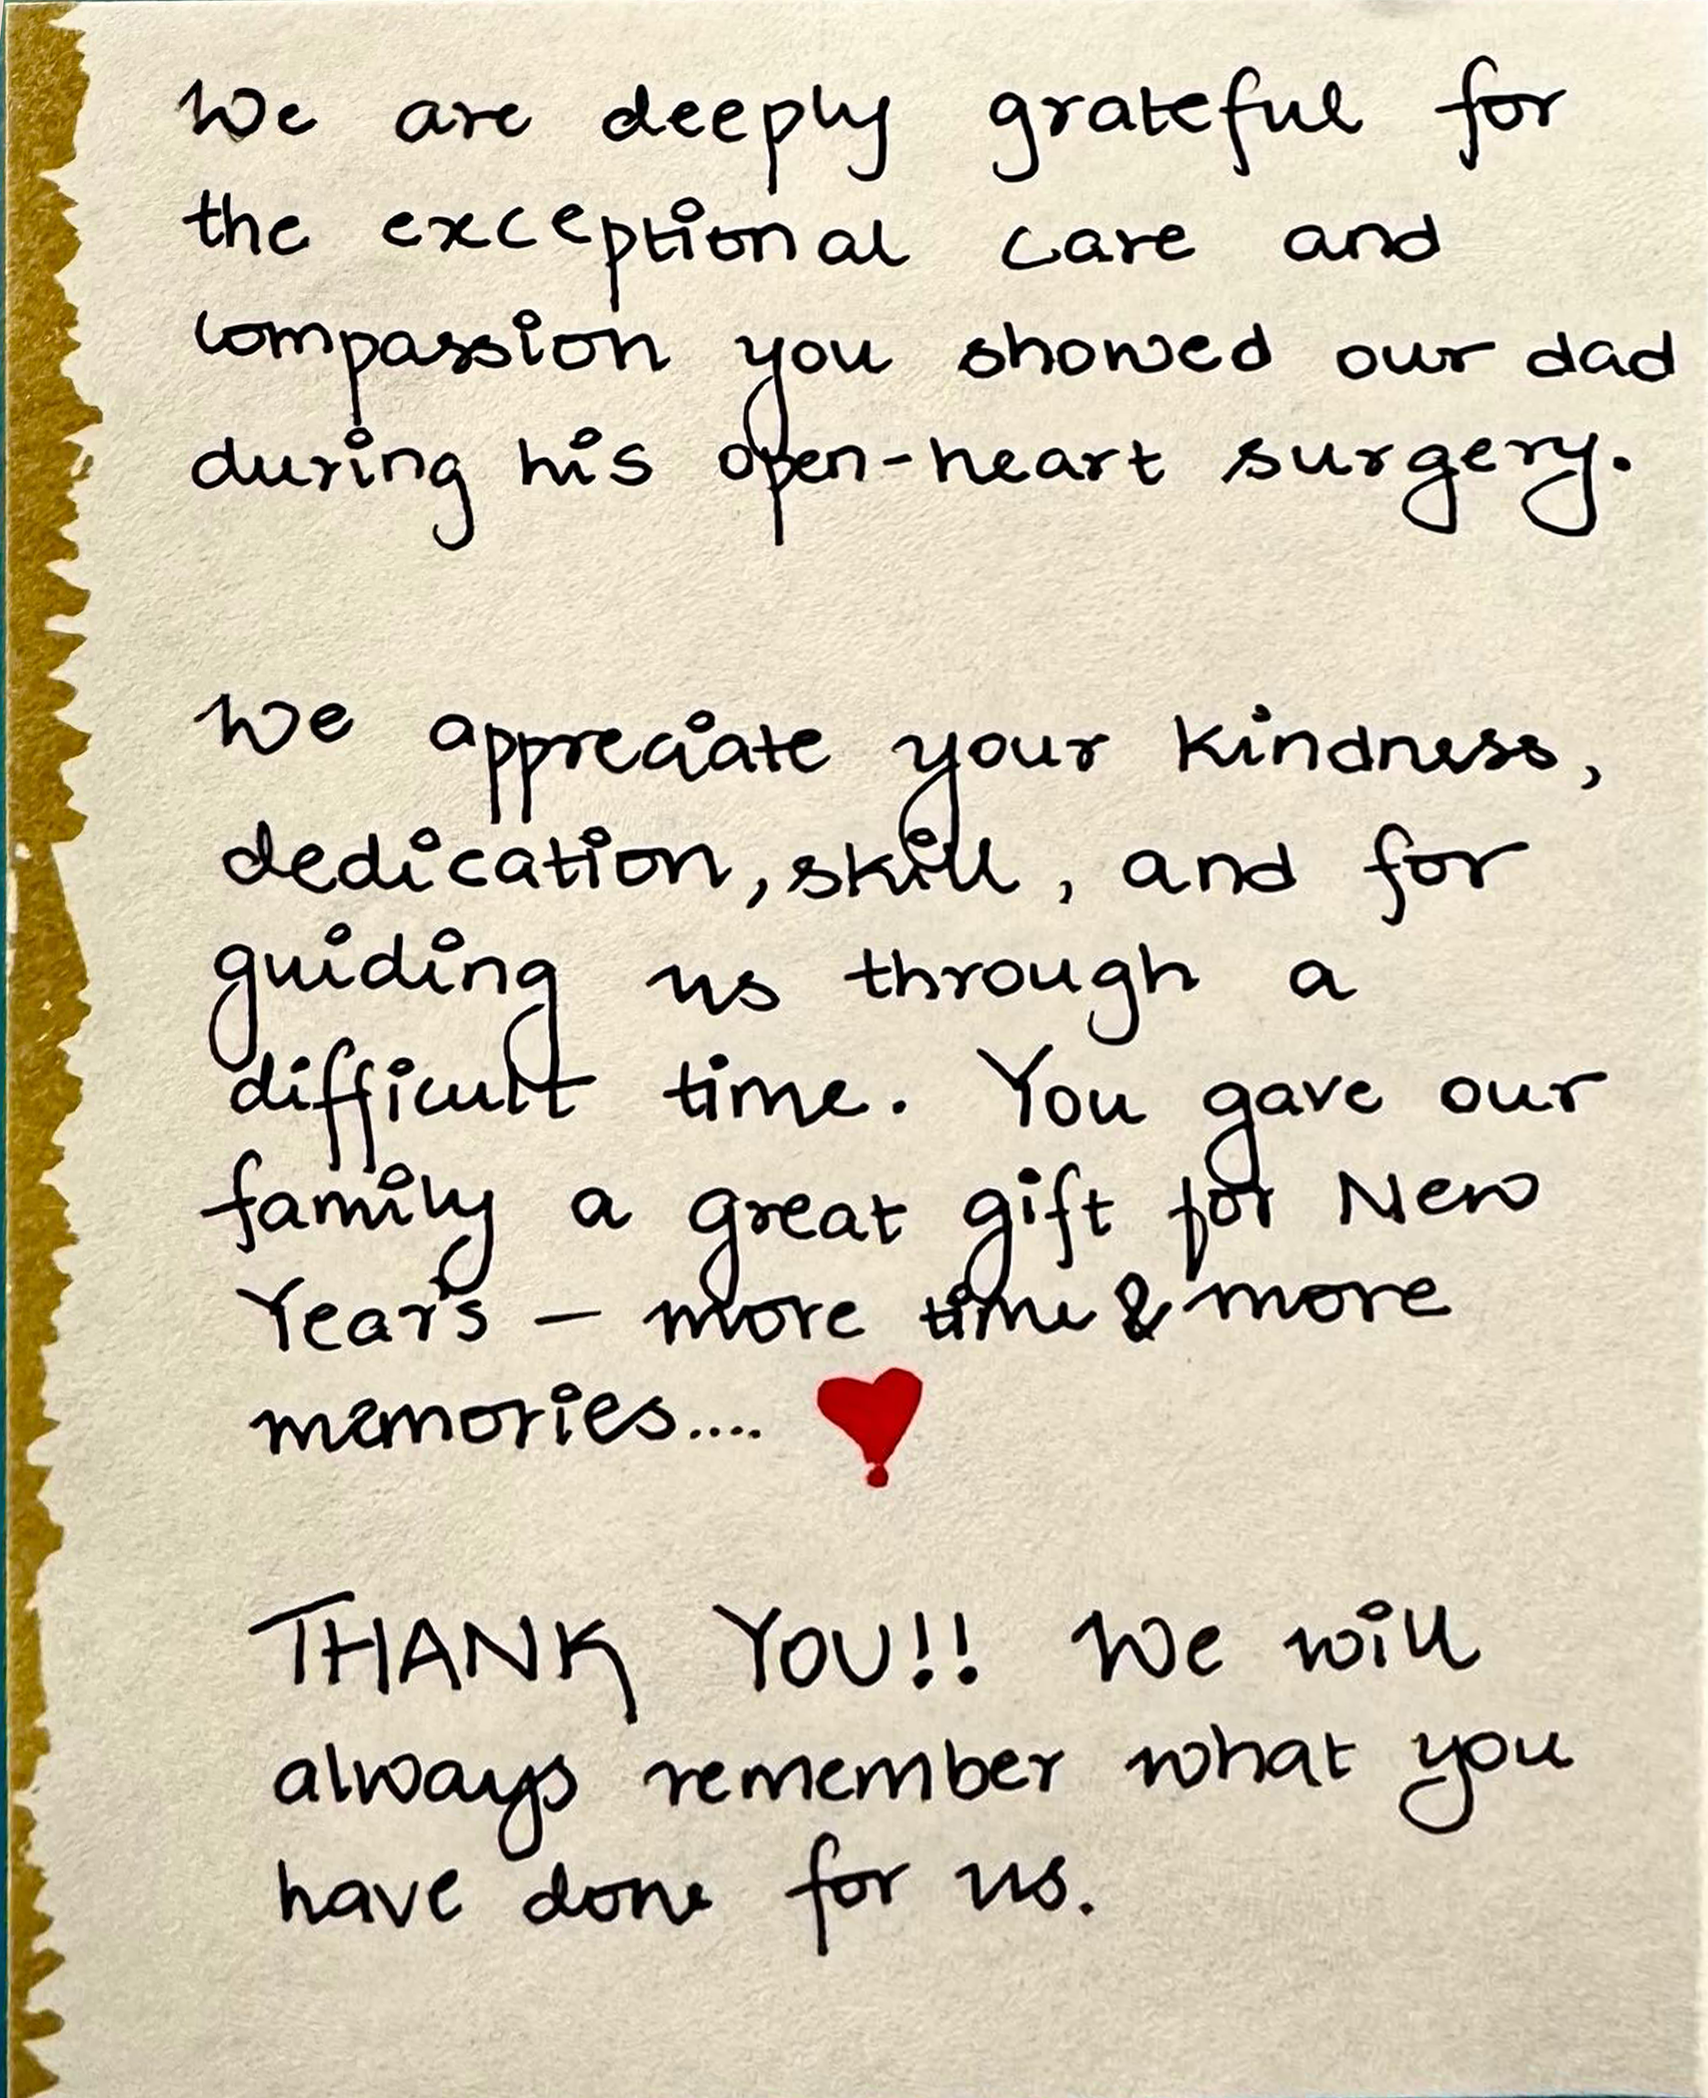 We are deeply grateful for
the exceptional care and
compassion you showed our dad
during his open-heart surgery.
We appreciate your kindness,
dedication, skill, and for
guiding us through a
difficult time. You gave our
family a great gift for New
Year's - more time & more
memories....
THANK YOU!! We will
always remember what you
have done for us.